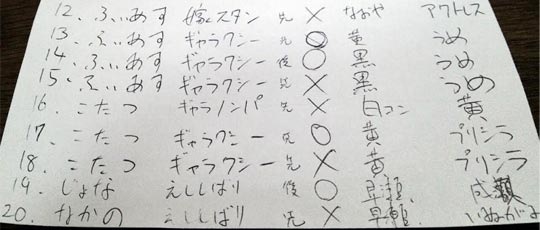 12. ふぃあす 嫁スタン 先 × なおや アクトレス
13. ふぃあす ギャラクシー 先 ○ 黄 うめ
14. ふぃあす ギャラクシー 後 ○ 黒 うめ
15. ふぃあす ギャラクシー 先 × 黒 うめ
16. こたつ ギャラノンパ 先 × 白コン 黄
17. こたつ ギャラクシー 先 ○ 黄 プリシラ
18. こたつ ギャラクシー 先 × 黄 プリシラ
19. じょな えししばり 後 ○ 早瀬 成瀬
20. なかの えししばり 先 × 早瀬